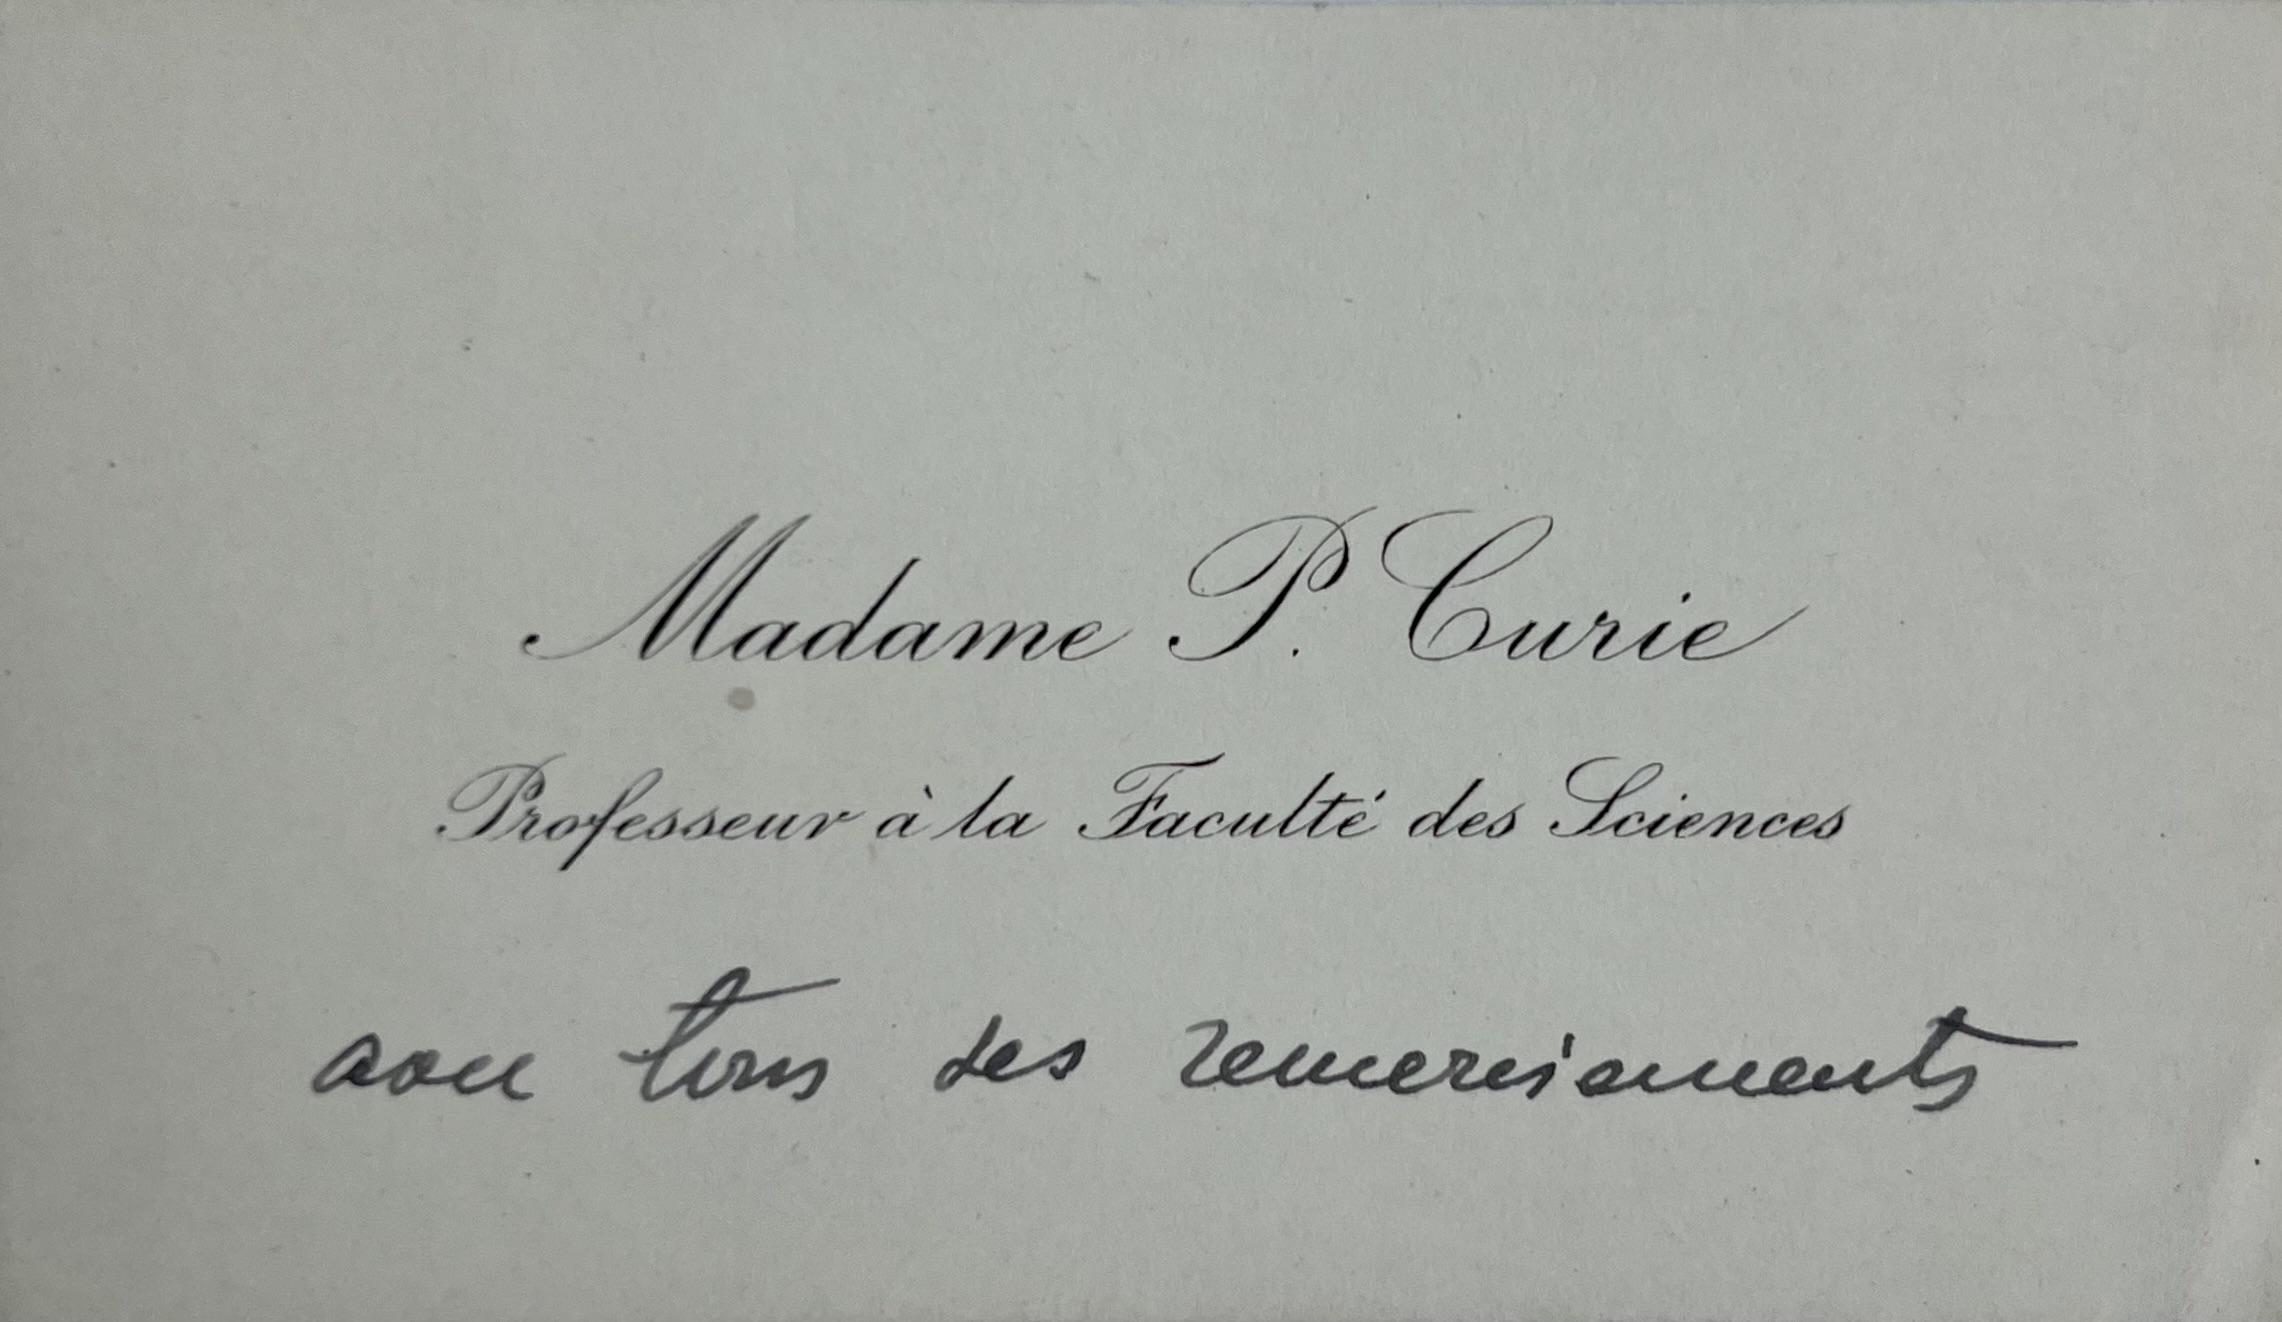 Madame P. Curie
Professeur à la Faculté des Sciences
avec tous ses remerciements